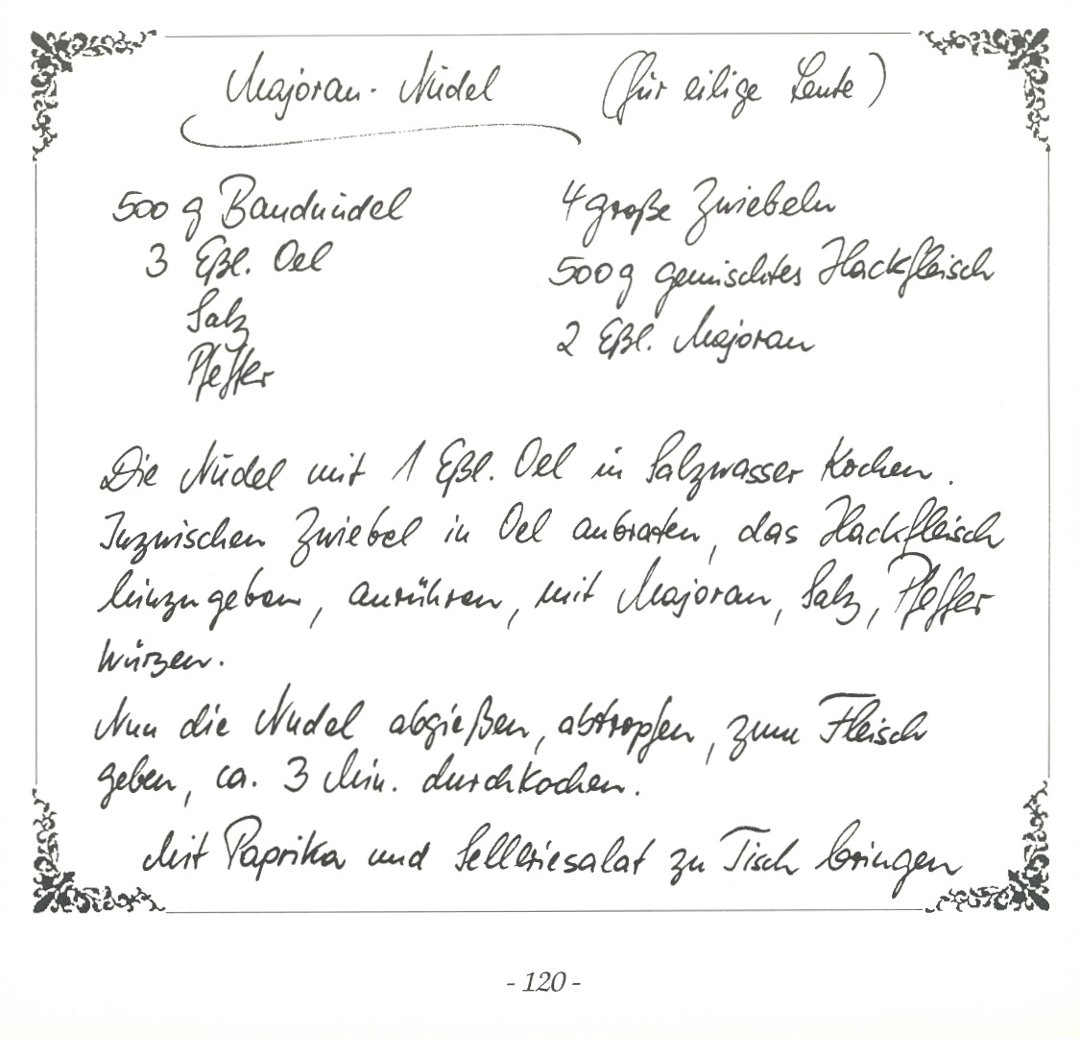 Majoran-Nudel (für eilige Leute)
500 g Bandnudel
3 Eßl. Oel
Salz
Pfeffer
4 große Zwiebeln
500g gemischtes Hackfleisch
2 Eßl. Majoran
Die Nudel mit 1 Eßl. Oel in Salzwasser kochen.
Inzwischen Zwiebel in Oel anbraten, das Hackfleisch
hinzugeben, anrühren, mit Majoran, Salz, Pfeffer
würzen.
Nun die Nudel abgießen, abtropfen, zum Fleisch
geben, ca. 3 Min. durchkochen.
Mit Paprika und Selleriesalat zu Tisch bringen
- 120 -